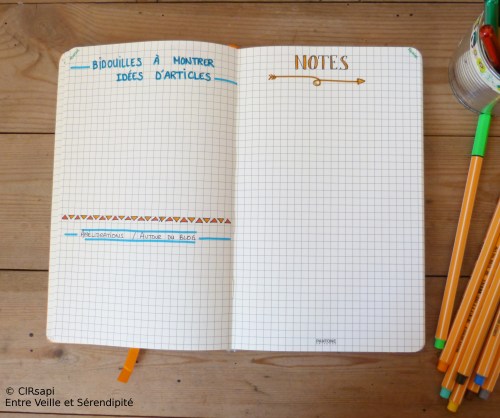 BIDOUILLES À MONTRER
IDÉES D'ARTICLES
AMÉLIORATIONS / AUTOUR DU BLOG
NOTES
© CIRsapi
Entre Veille et Sérendipité